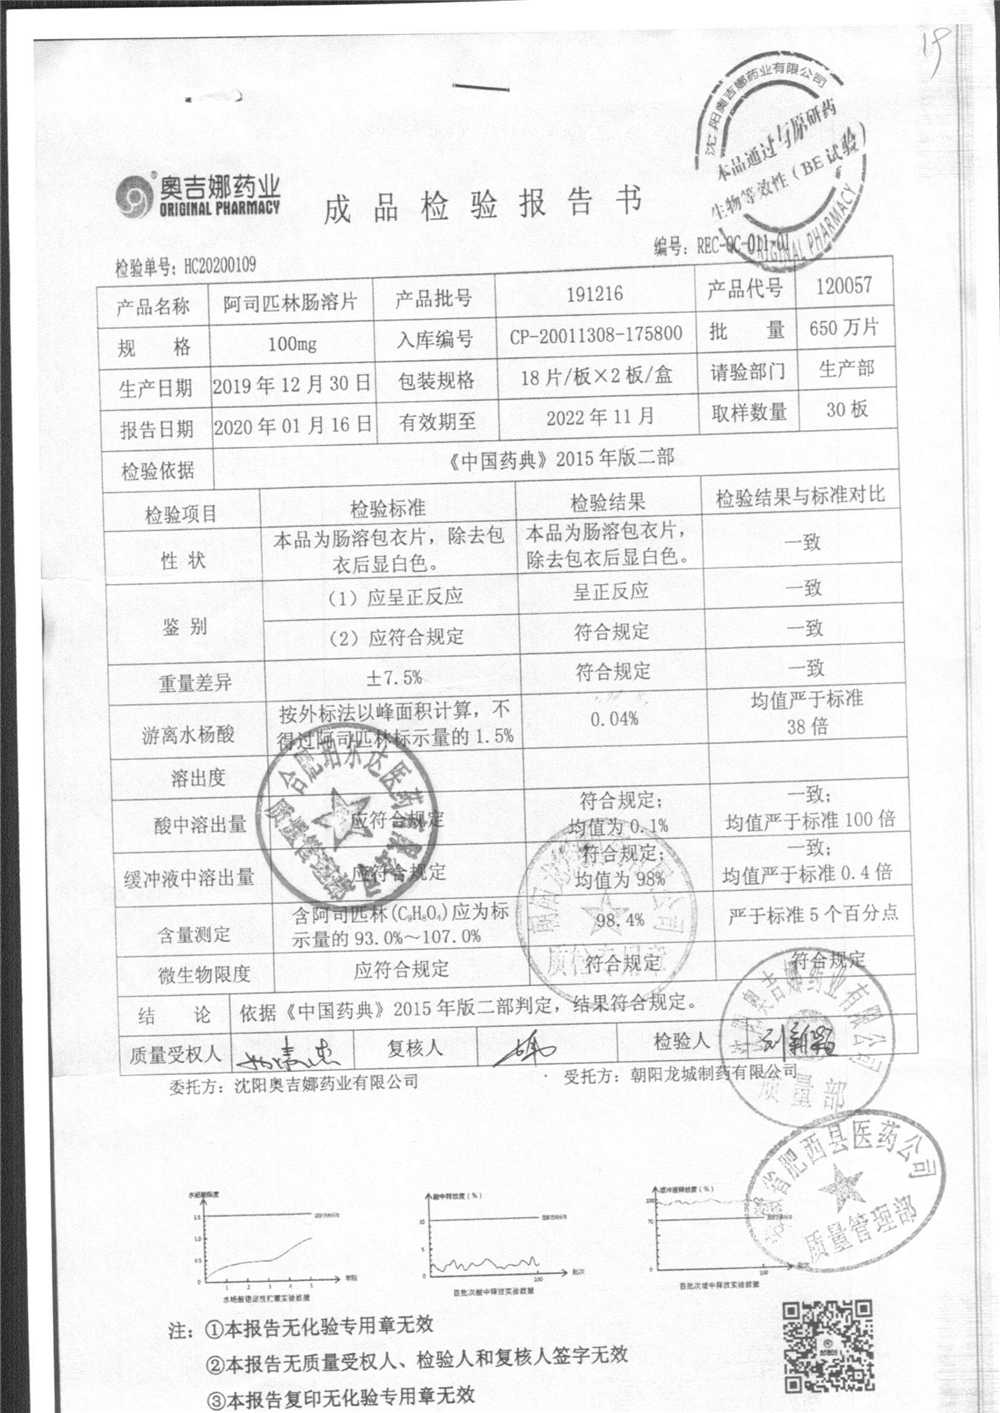 19
沈阳奥吉娜药业有限公司
本品通过与原研药
生物等效性（BE试验）
ORIGINAL PHARMACY
奥吉娜药业
ORIGINAL PHARMACY
成品检验报告书
编号：REC-QC-011-01
检验单号：HC20200109
产品名称 阿司匹林肠溶片 产品批号 191216 产品代号 120057
规 格 100mg 入库编号 CP-20011308-175800 批 量 650万片
生产日期 2019年12月30日 包装规格 18片/板×2板/盒 请验部门 生产部
报告日期 2020年01月16日 有效期至 2022年11月 取样数量 30板
检验依据 《中国药典》2015年版二部
检验项目 检验标准 检验结果 检验结果与标准对比
性 状 本品为肠溶包衣片，除去包衣后显白色。 本品为肠溶包衣片，除去包衣后显白色。 一致
鉴 别 （1）应呈正反应 呈正反应 一致
（2）应符合规定 符合规定 一致
重量差异 ±7.5% 符合规定 一致
游离水杨酸 按外标法以峰面积计算，不得过阿司匹林标示量的1.5% 0.04% 均值严于标准38倍
溶出度
酸中溶出量 应符合规定 符合规定；均值为0.1% 一致；均值严于标准100倍
缓冲液中溶出量 应符合规定 符合规定；均值为98% 一致；均值严于标准0.4倍
含量测定 含阿司匹林(C₉H₈O₄)应为标示量的93.0%～107.0% 98.4% 严于标准5个百分点
微生物限度 应符合规定 符合规定 符合规定
结 论 依据《中国药典》2015年版二部判定，结果符合规定。
质量受权人 复核人 检验人 刘新颖
委托方：沈阳奥吉娜药业有限公司 受托方：朝阳龙城制药有限公司
合肥珀尔达医药有限公司
质量管理部
质检专用章
沈阳奥吉娜药业有限公司
质量部
安徽省肥西县医药公司
质量管理部
酸中释放度（%）
缓冲液释放度（%）
1.5
1.0
0.5
0
1 2 3 4 5
10
5
0
100
100
70
0
100
批次
水杨酸稳定性贮藏实验数据
百批次酸中释放实验数据
注：①本报告无化验专用章无效
②本报告无质量受权人、检验人和复核人签字无效
③本报告复印无化验专用章无效